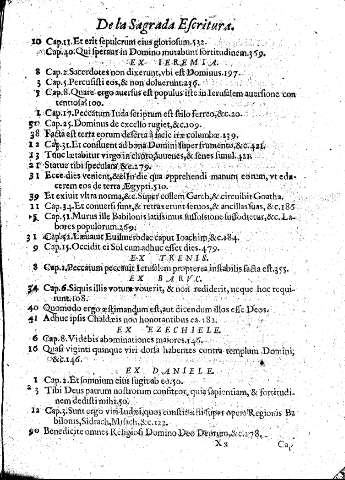 De la Sagrada Escritura.
10 Cap.11. Et erit sepulcrum eius gloriosum.132.
Cap.40. Qui sperant in Domino mutabunt fortitudinem.359.
EX IEREMIA.
8 Cap.2. Sacerdotes non dixerunt, vbi est Dominus.197.
3 Cap.5. Percussisti eos, & non doluerunt.236.
5 Cap.8. Quare ergo auersus est populus iste in Ierusalem auersione con
tentiosa? 100.
1 Cap.17. Peccatum Iuda scriptum est stilo ferreo, &c.20.
50 Cap.25. Dominus de excelso rugiet, &c.209.
38 Facta est terra eorum deserta à facie iræ columbæ.139.
12 Cap.31. Et confluent ad bona Domini super frumento, &c.421.
13 Tunc lætabitur virgo in choro, iuuenes, & senes simul.421.
21 Statue tibi specula &c.279.
31 Ecce dies venient, & in die qua apprehendi manum eorum, vt edu-
cerem eos de terra Ægypti.510.
39 Et exiuit vltra norma, &c. super collem Gareb, & circuibit Goatha.
11 Cap.34. Et conuersi sunt, & retraxerunt seruos, & ancillas suas, &c.186
15 Cap.51. Murus ille Babilonis latissimus suffossione suffodietur, &c. La-
bores populorum.269.
31 Euilmerodac caput Ioachim, &c.284.
9 Cap.15. Occidit ei Sol cum adhuc esset dies.479.
EX TRENIS.
8 Cap.1. Peccatum peccauit Ierusalem propterea instabilis facta est.355.
EX BARVC.
34 Cap.6. Siquis illis votum vouerit, & non reddiderit, neque hoc requi-
runt.108.
40 Quomodo ergo æstimandum est, aut dicendum illos esse Deos.
41 Adhuc ipsis Chaldæis non honorantibus ea.182.
EX EZECHIELE.
6 Cap.8. Videbis abominationes maiores.146.
16 Quasi viginti quinque viri dorsa habentes contra templum Domini,
&c.146.
EX DANIELE.
1 Cap.2. Et somnium eius fugit ab eo.50.
23 Tibi Deus patrum nostrorum confiteor, quia sapientiam, & fortitudi-
nem dedisti mihi.50.
12 Cap.3. Sunt ergo viri Iudæi, quos constituisti super opera Regionis Ba
bilonis, Sidrach, Misach, &c.122.
90 Benedicite omnes Religiosi Domino Deo Deorum, &c.278.
Xx Ca,